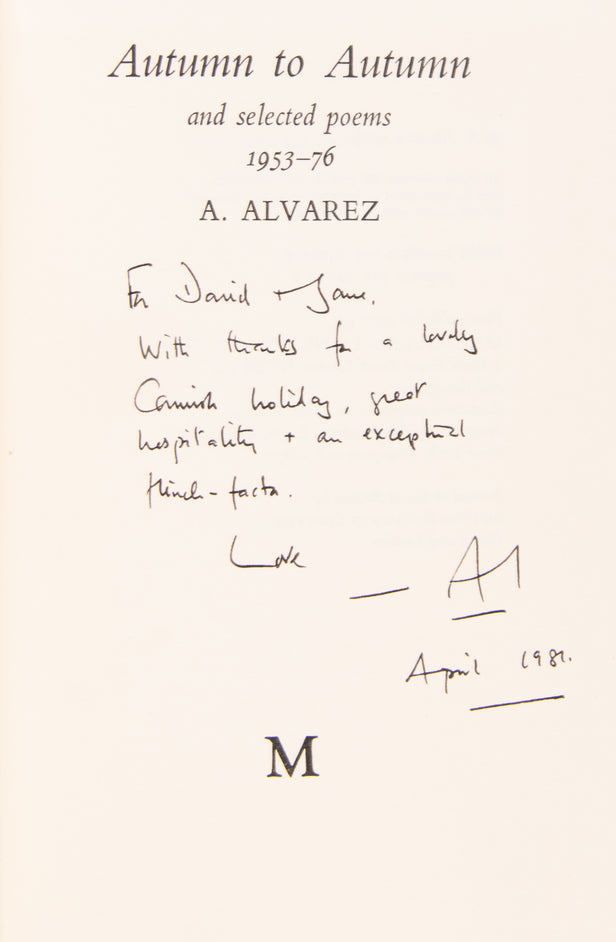 Autumn to Autumn
and selected poems
1953–76
A. ALVAREZ
For David + Jane.
With thanks for a lovely
Cornish holiday, great
hospitality + an exceptional
flinch-factor.
Love
— Al
April 1981.
M